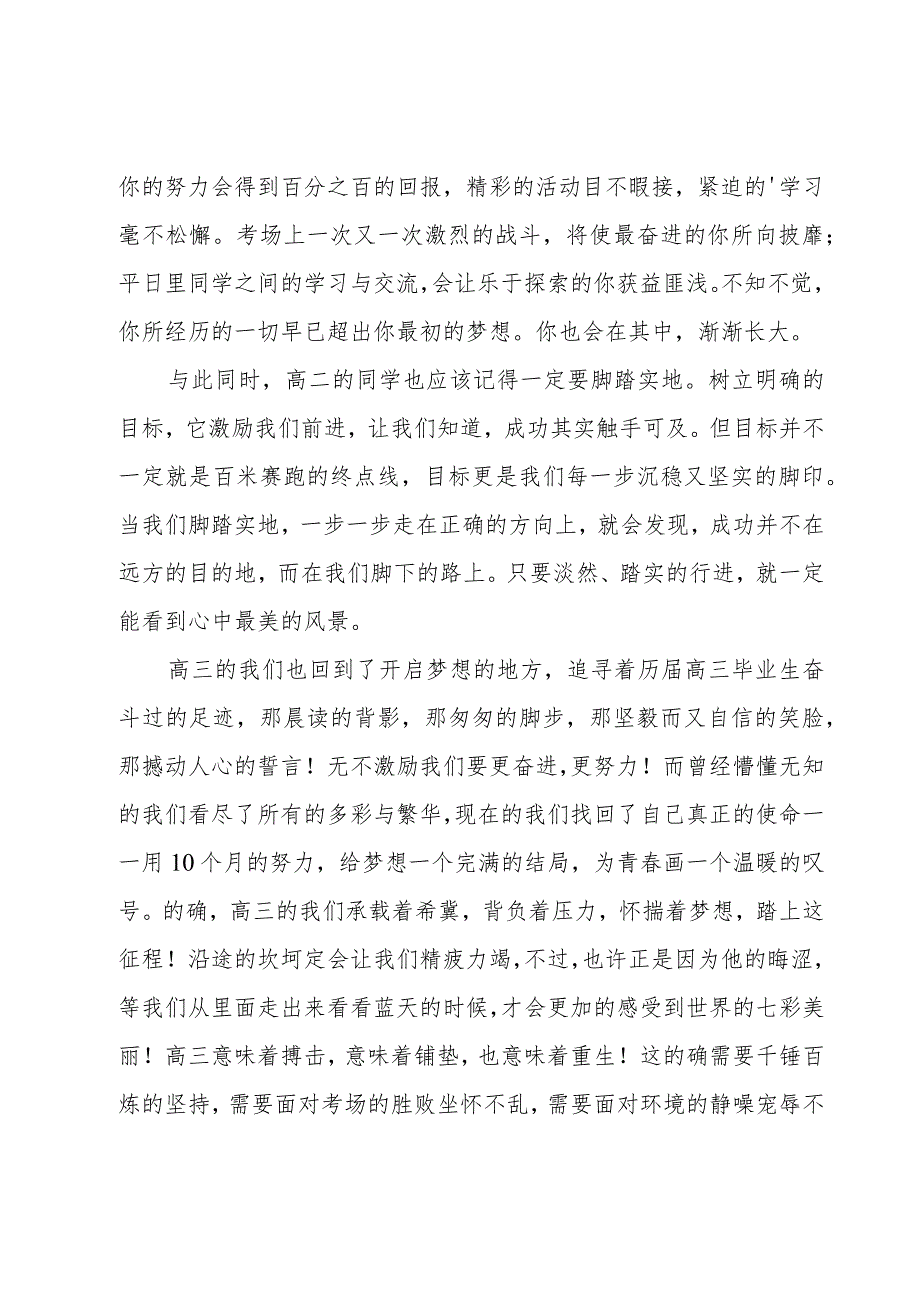 你的努力会得到百分之百的回报，精彩的活动目不暇接，紧迫的'学习
毫不松懈。考场上一次又一次激烈的战斗，将使最奋进的你所向披靡；
平日里同学之间的学习与交流，会让乐于探索的你获益匪浅。不知不觉，
你所经历的一切早已超出你最初的梦想。你也会在其中，渐渐长大。
与此同时，高二的同学也应该记得一定要脚踏实地。树立明确的
目标，它激励我们前进，让我们知道，成功其实触手可及。但目标并不
一定就是百米赛跑的终点线，目标更是我们每一步沉稳又坚实的脚印。
当我们脚踏实地，一步一步走在正确的方向上，就会发现，成功并不在
远方的目的地，而在我们脚下的路上。只要淡然、踏实的行进，就一定
能看到心中最美的风景。
高三的我们也回到了开启梦想的地方，追寻着历届高三毕业生奋
斗过的足迹，那晨读的背影，那匆匆的脚步，那坚毅而又自信的笑脸，
那撼动人心的誓言！无不激励我们要更奋进，更努力！而曾经懵懂无知
的我们看尽了所有的多彩与繁华，现在的我们找回了自己真正的使命一
一用 10 个月的努力，给梦想一个完满的结局，为青春画一个温暖的叹
号。的确，高三的我们承载着希冀，背负着压力，怀揣着梦想，踏上这
征程！沿途的坎坷定会让我们精疲力竭，不过，也许正是因为他的晦涩，
等我们从里面走出来看看蓝天的时候，才会更加的感受到世界的七彩美
丽！高三意味着搏击，意味着铺垫，也意味着重生！这的确需要千锤百
炼的坚持，需要面对考场的胜败坐怀不乱，需要面对环境的静噪宠辱不